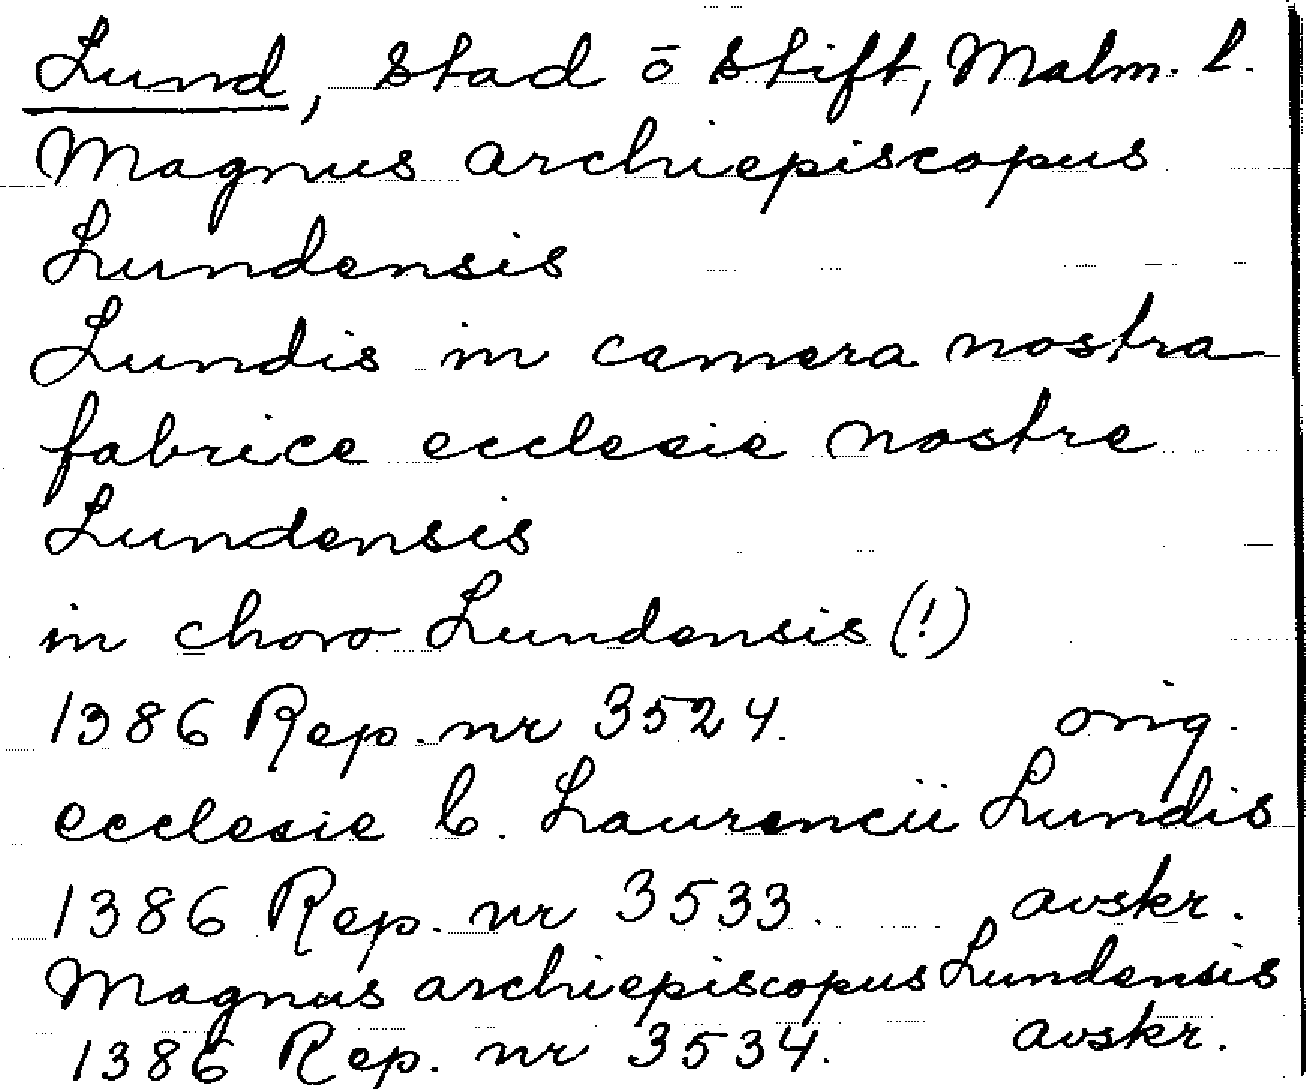 Lund, stad ō stift, Malm. l.
Magnus archiepiscopus
Lundensis
Lundis in camera nostra
fabrice ecclesie nostre
Lundensis
in choro Lundensis (!)
1386 Rep. nr 3524. orig.
ecclesie b. Laurencii Lundis
1386 Rep. nr 3533. avskr.
Magnus archiepiscopus Lundensis
1386 Rep. nr 3534. avskr.